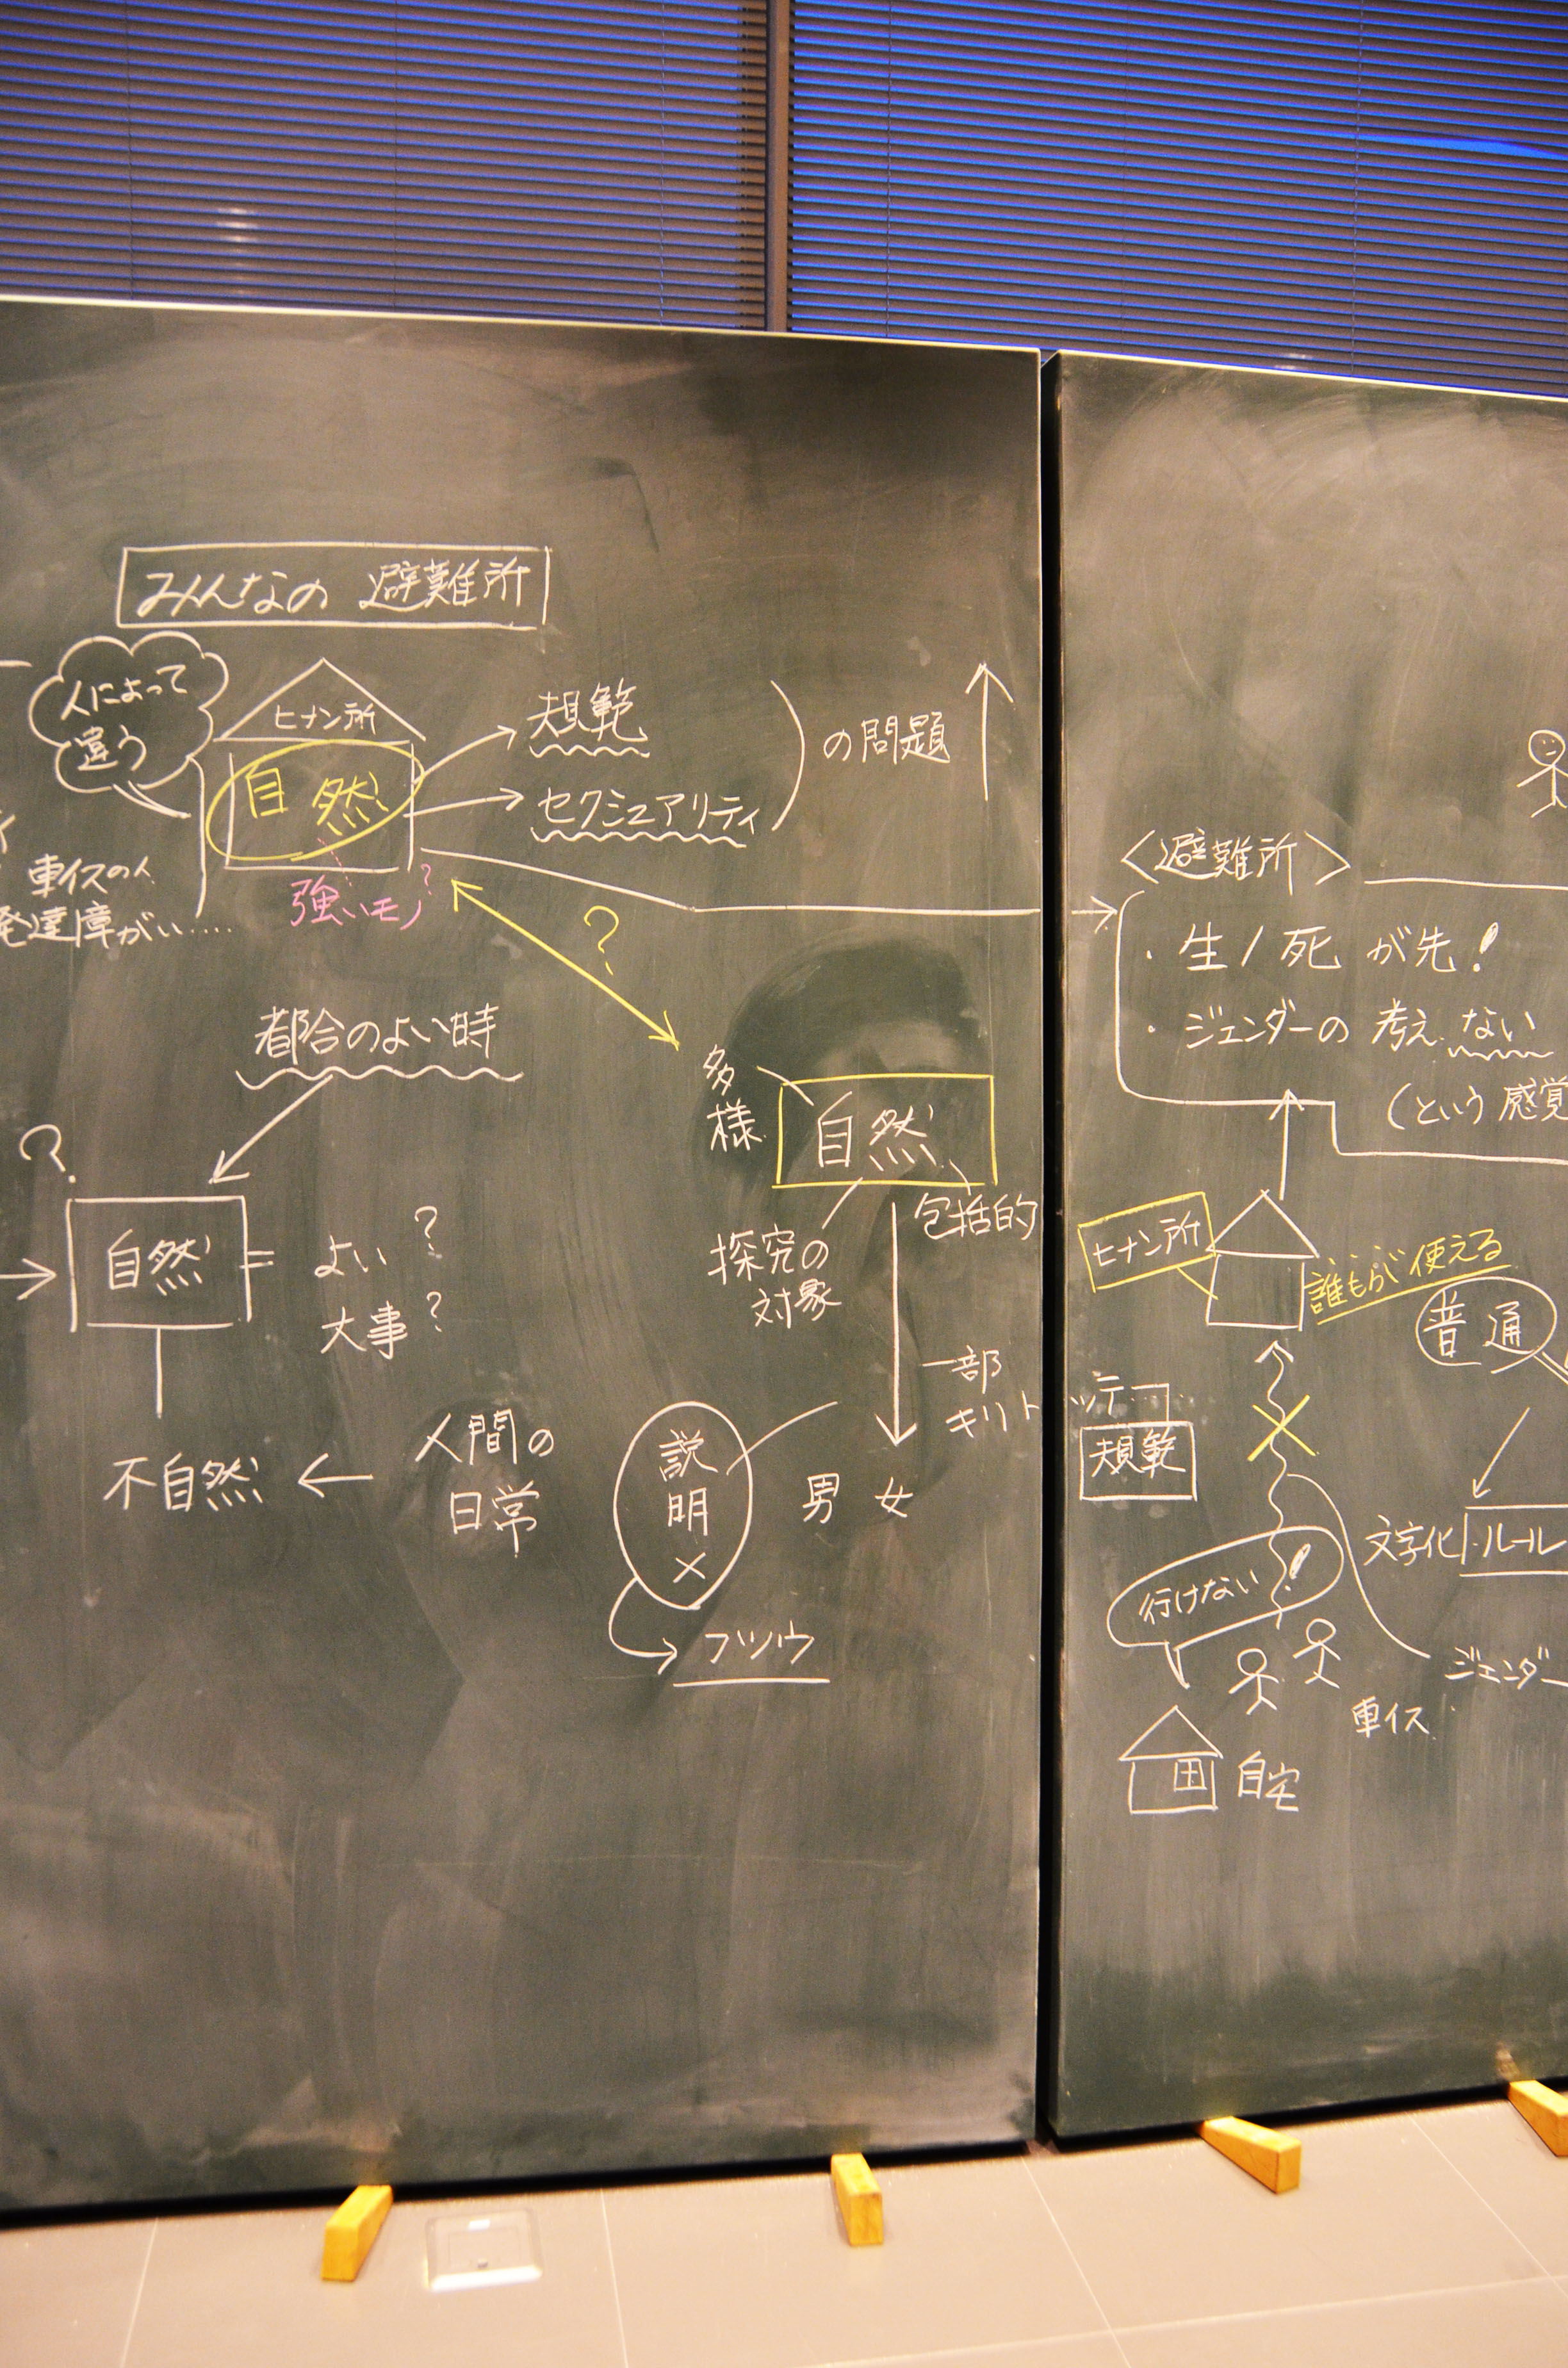 みんなの 避難所
人によって
違う
ヒナン所
自然
規範
セクシュアリティ
の問題
車イスの人
発達障がい....
強いモノ?
?
都合のよい時
?
自然
= よい?
大事?
不自然 ← 人間の
日常
多様
自然
包括的
探究の
対象
一部
キリトッテ
男 女
説明×
フツウ
〈避難所〉
・生/死 が先!
・ジェンダーの 考え ない
(という 感覚
ヒナン所
誰もが使える
普通
規範
文字化 ルール
行けない!
ジェンダー
車イス
自宅